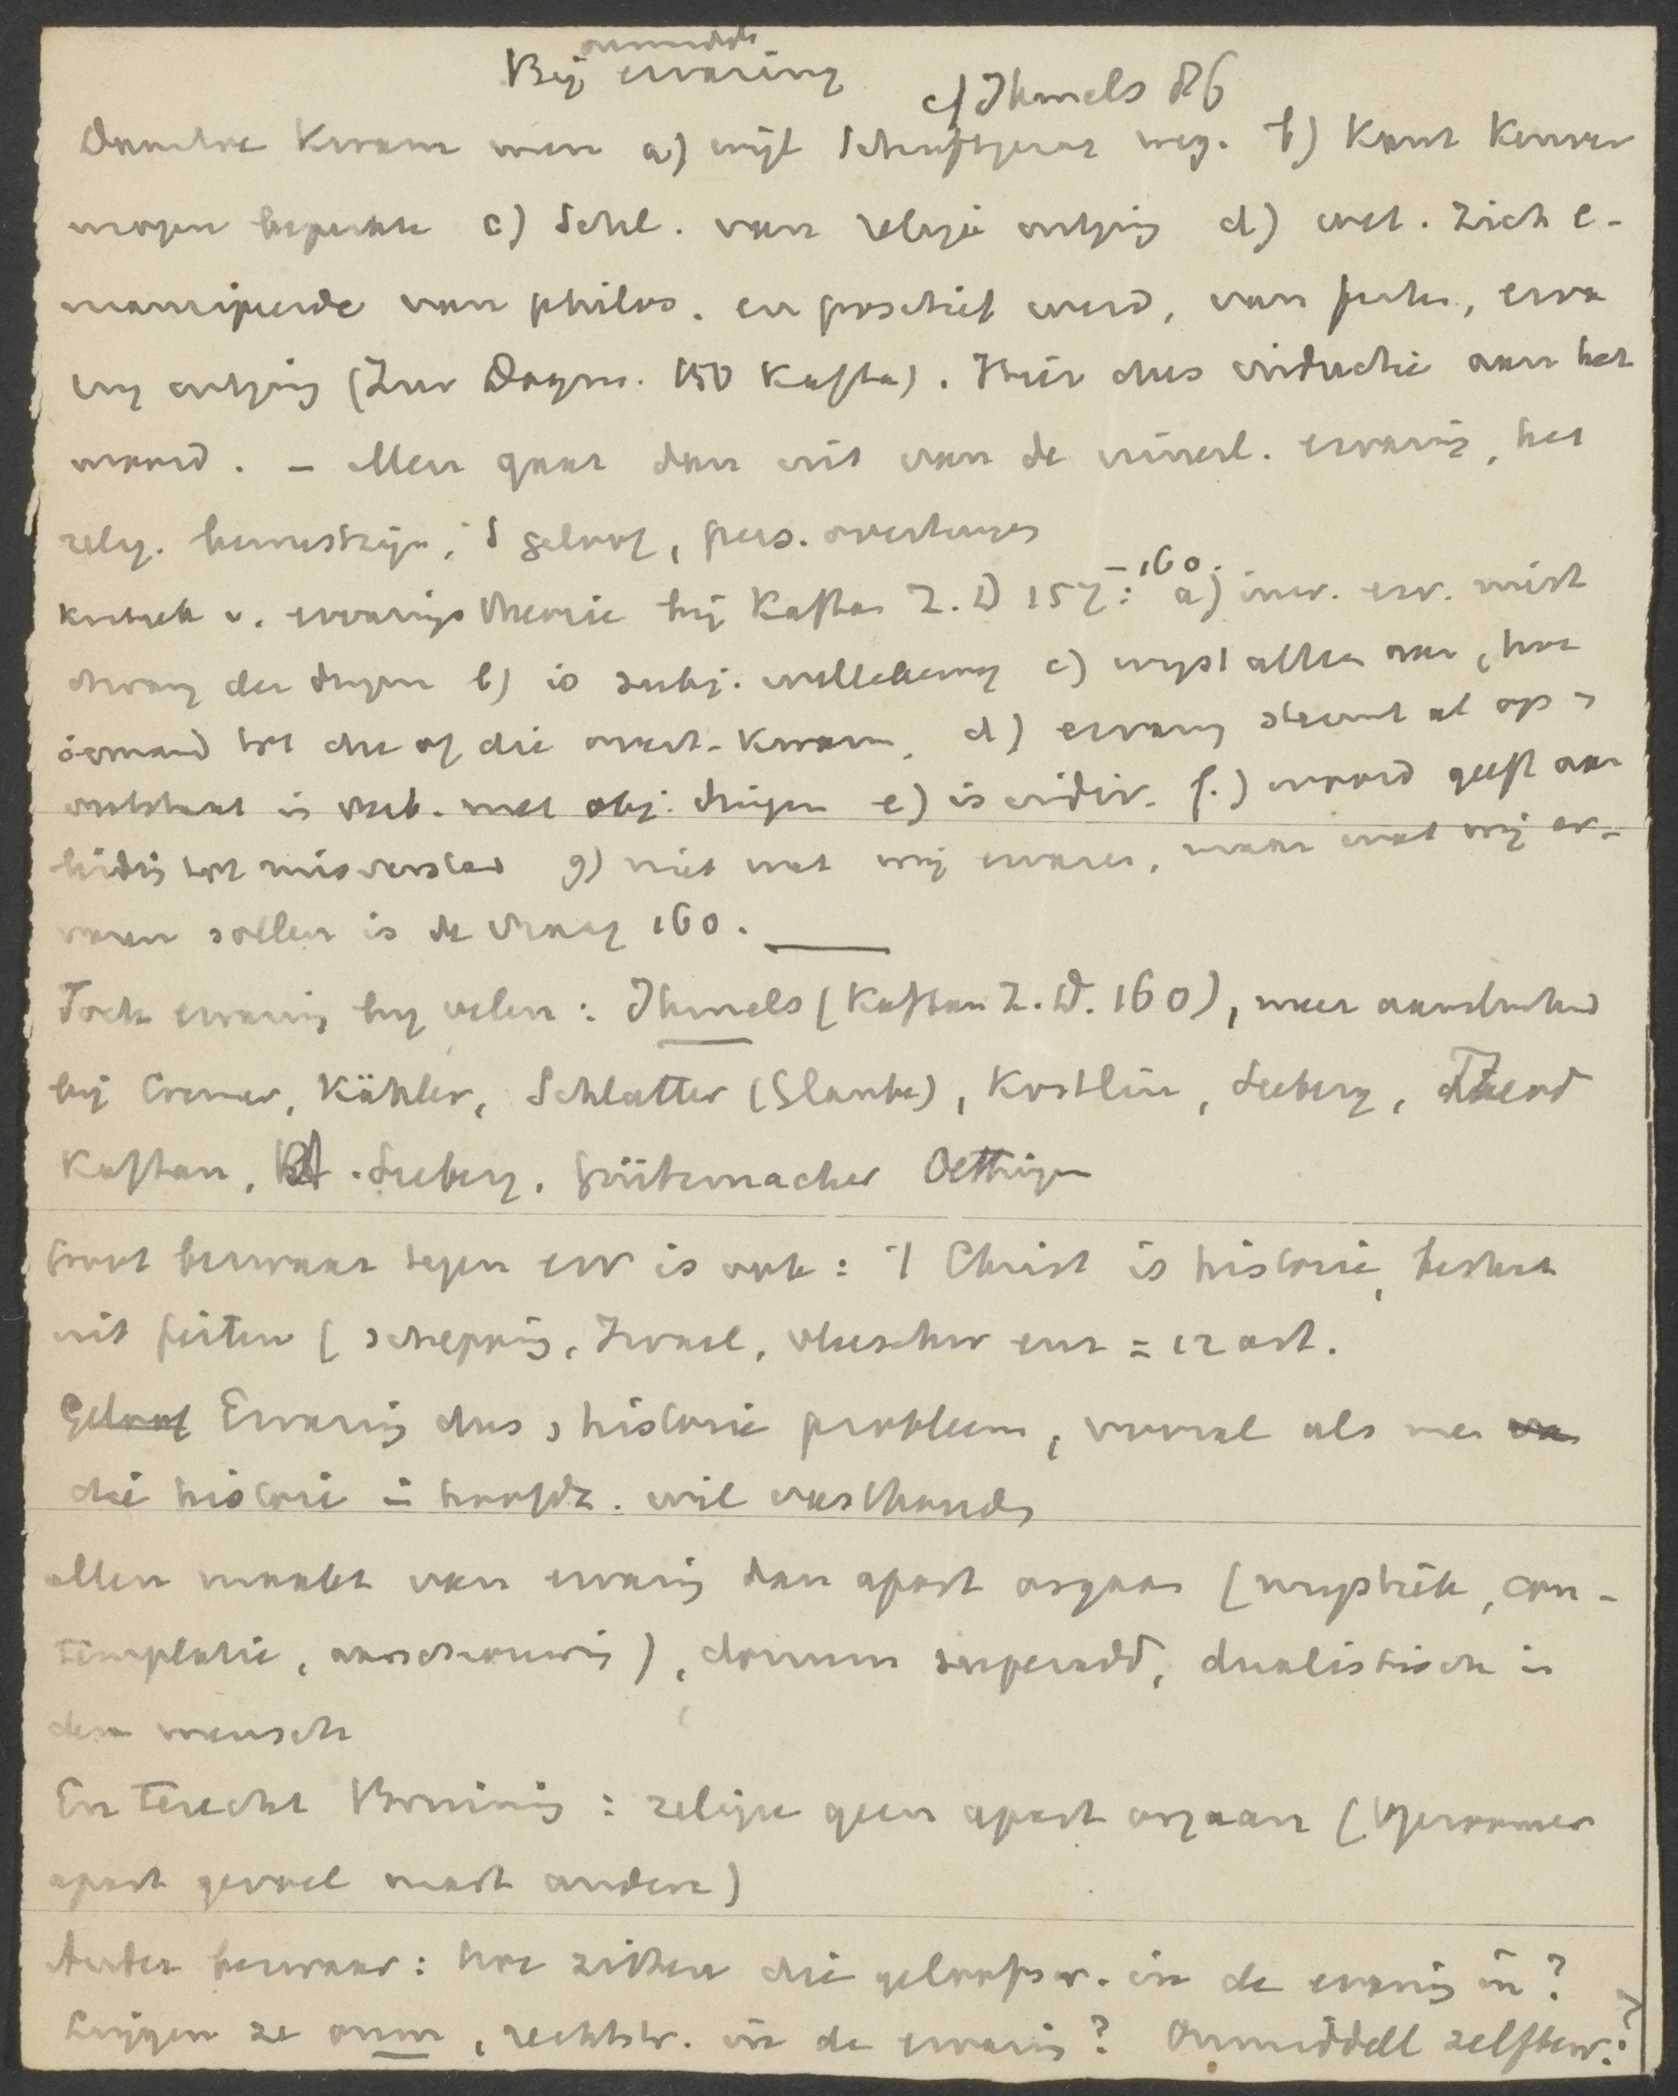 onmidd.
Bij ervaring
cf Ihmels 86
Daartoe kwam men a) wijl Schriftgezag weg. b) Kant kenver
mogen beperkte c) Schl. van religie uitging d) wet. zich e-
mancipeerde van philos. en positief werd, van feiten, erva
ring uitging (Zur Dogm. 150 Kaftan). Hier dus inductie aan het
woord. – Men gaat dan uit van de innerl. ervaring, het
relig. bewustzijn, 't geloof, pers. overtuiging
Kritiek v. ervaringstheorie bij Kaftan Z. D 157–160: a) inw. erv. mist
dwang der dingen b) is subj. c) wijst alleen aan, hoe
iemand tot die of die overt. kwam, d) ervaring steunt al op
ontstaat in verb. met obj. dingen e) is indiv. f.) woord geeft aan
leiding tot misverstand g) niet wat wij ervaren, maar wat wij er-
varen sollen is de vraag 160.
Toch ervaring bij velen: Ihmels (Kaftan Z. D. 160), meer aansluitend
bij Cremer, Kähler, Schlatter (Glaube), Kostlin, Seeberg,
Kaftan, Seeberg, Grützmacher Oettingen
Groot bezwaar tegen erv is ook: 't Christ is historie, bestaat
uit feiten (schepping, Israel, vleeschw enz = 12 art.
Geloof Ervaring dus historie probleem, vooral als men
die historie in hoofdz. wil vasthouden
Men maakt van ervaring dan apart orgaan (mystiek, con-
templatie, aanschouwing), donum superadd, dualistisch in
den mensch
En terecht Bruining: religie geen apart orgaan (
apart gevoel naast andere)
Ander bezwaar: hoe zitten die geloofsw. in de ervaring in?
Liggen ze onm, rechtstr. in de ervaring? Onmiddell zelfbew.?